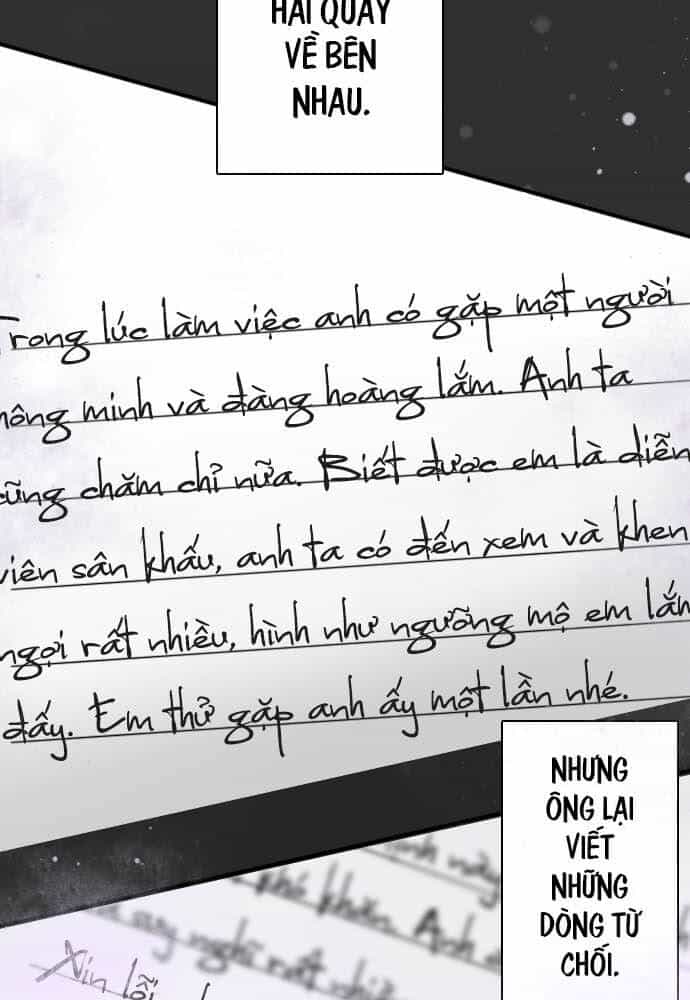 HAI QUAY
VỀ BÊN
NHAU.
Trong lúc làm việc anh có gặp một người
minh và đàng hoàng lắm. Anh ta
cũng chăm chỉ nữa. Biết được em là diễn
viên sân khấu, anh ta có đến xem và khen
ngợi rất nhiều, hình như ngưỡng mộ em lắm
đấy. Em thử gặp anh ấy một lần nhé.
NHƯNG
ÔNG LẠI
VIẾT
NHỮNG
DÒNG TỪ
CHỐI.
này
Anh
suy nghĩ rất
Xin lỗi